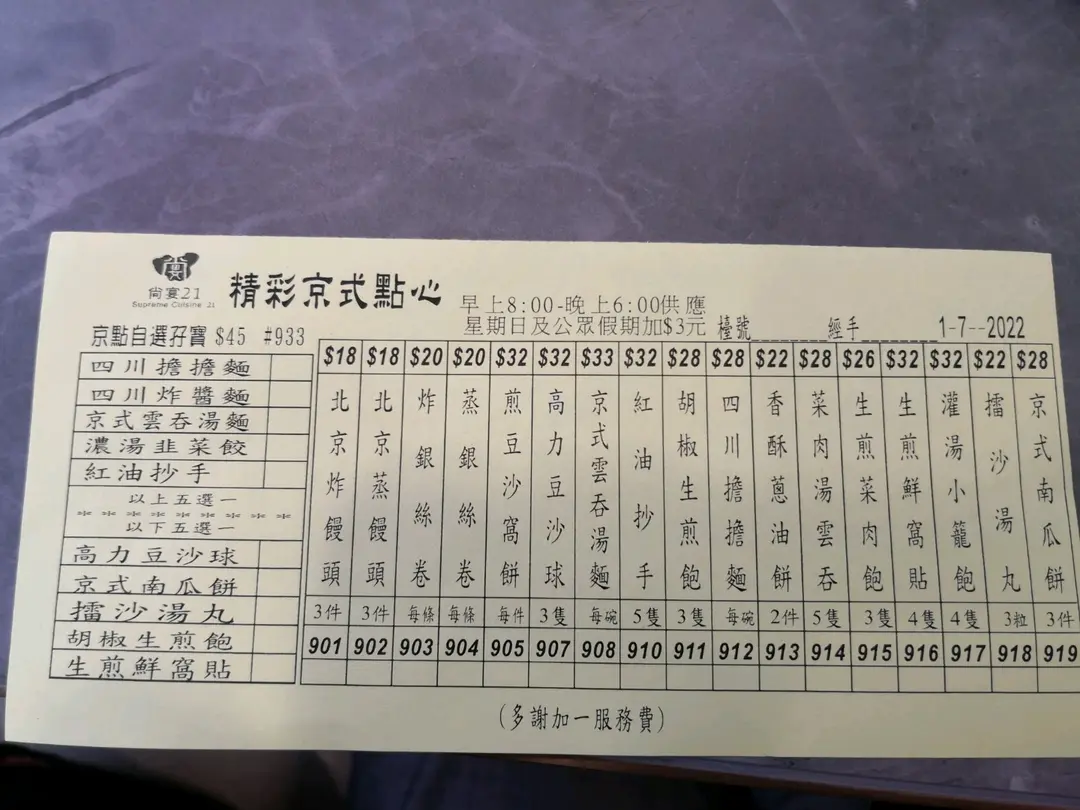 尚宴21
Supreme Cuisine 21
精彩京式點心
早上8:00-晚上6:00供應
星期日及公眾假期加$3元
檯號________經手________1-7--2022
京點自選孖寶 $45 #933
四川擔擔麵
四川炸醬麵
京式雲吞湯麵
濃湯韭菜餃
紅油抄手
以上五選一
＊＊＊＊＊＊＊＊＊
以下五選一
高力豆沙球
京式南瓜餅
擂沙湯丸
胡椒生煎飽
生煎鮮窩貼
$18 北京炸饅頭 3件 901
$18 北京蒸饅頭 3件 902
$20 炸銀絲卷 每條 903
$20 蒸銀絲卷 每條 904
$32 煎豆沙窩餅 每件 905
$32 高力豆沙球 3隻 907
$33 京式雲吞湯麵 每碗 908
$32 紅油抄手 5隻 910
$28 胡椒生煎飽 3隻 911
$28 四川擔擔麵 每碗 912
$22 香酥蔥油餅 2件 913
$28 菜肉湯雲吞 5隻 914
$26 生煎菜肉飽 3隻 915
$32 生煎鮮窩貼 4隻 916
$32 灌湯小籠飽 4隻 917
$22 擂沙湯丸 3粒 918
$28 京式南瓜餅 3件 919
(多謝加一服務費)